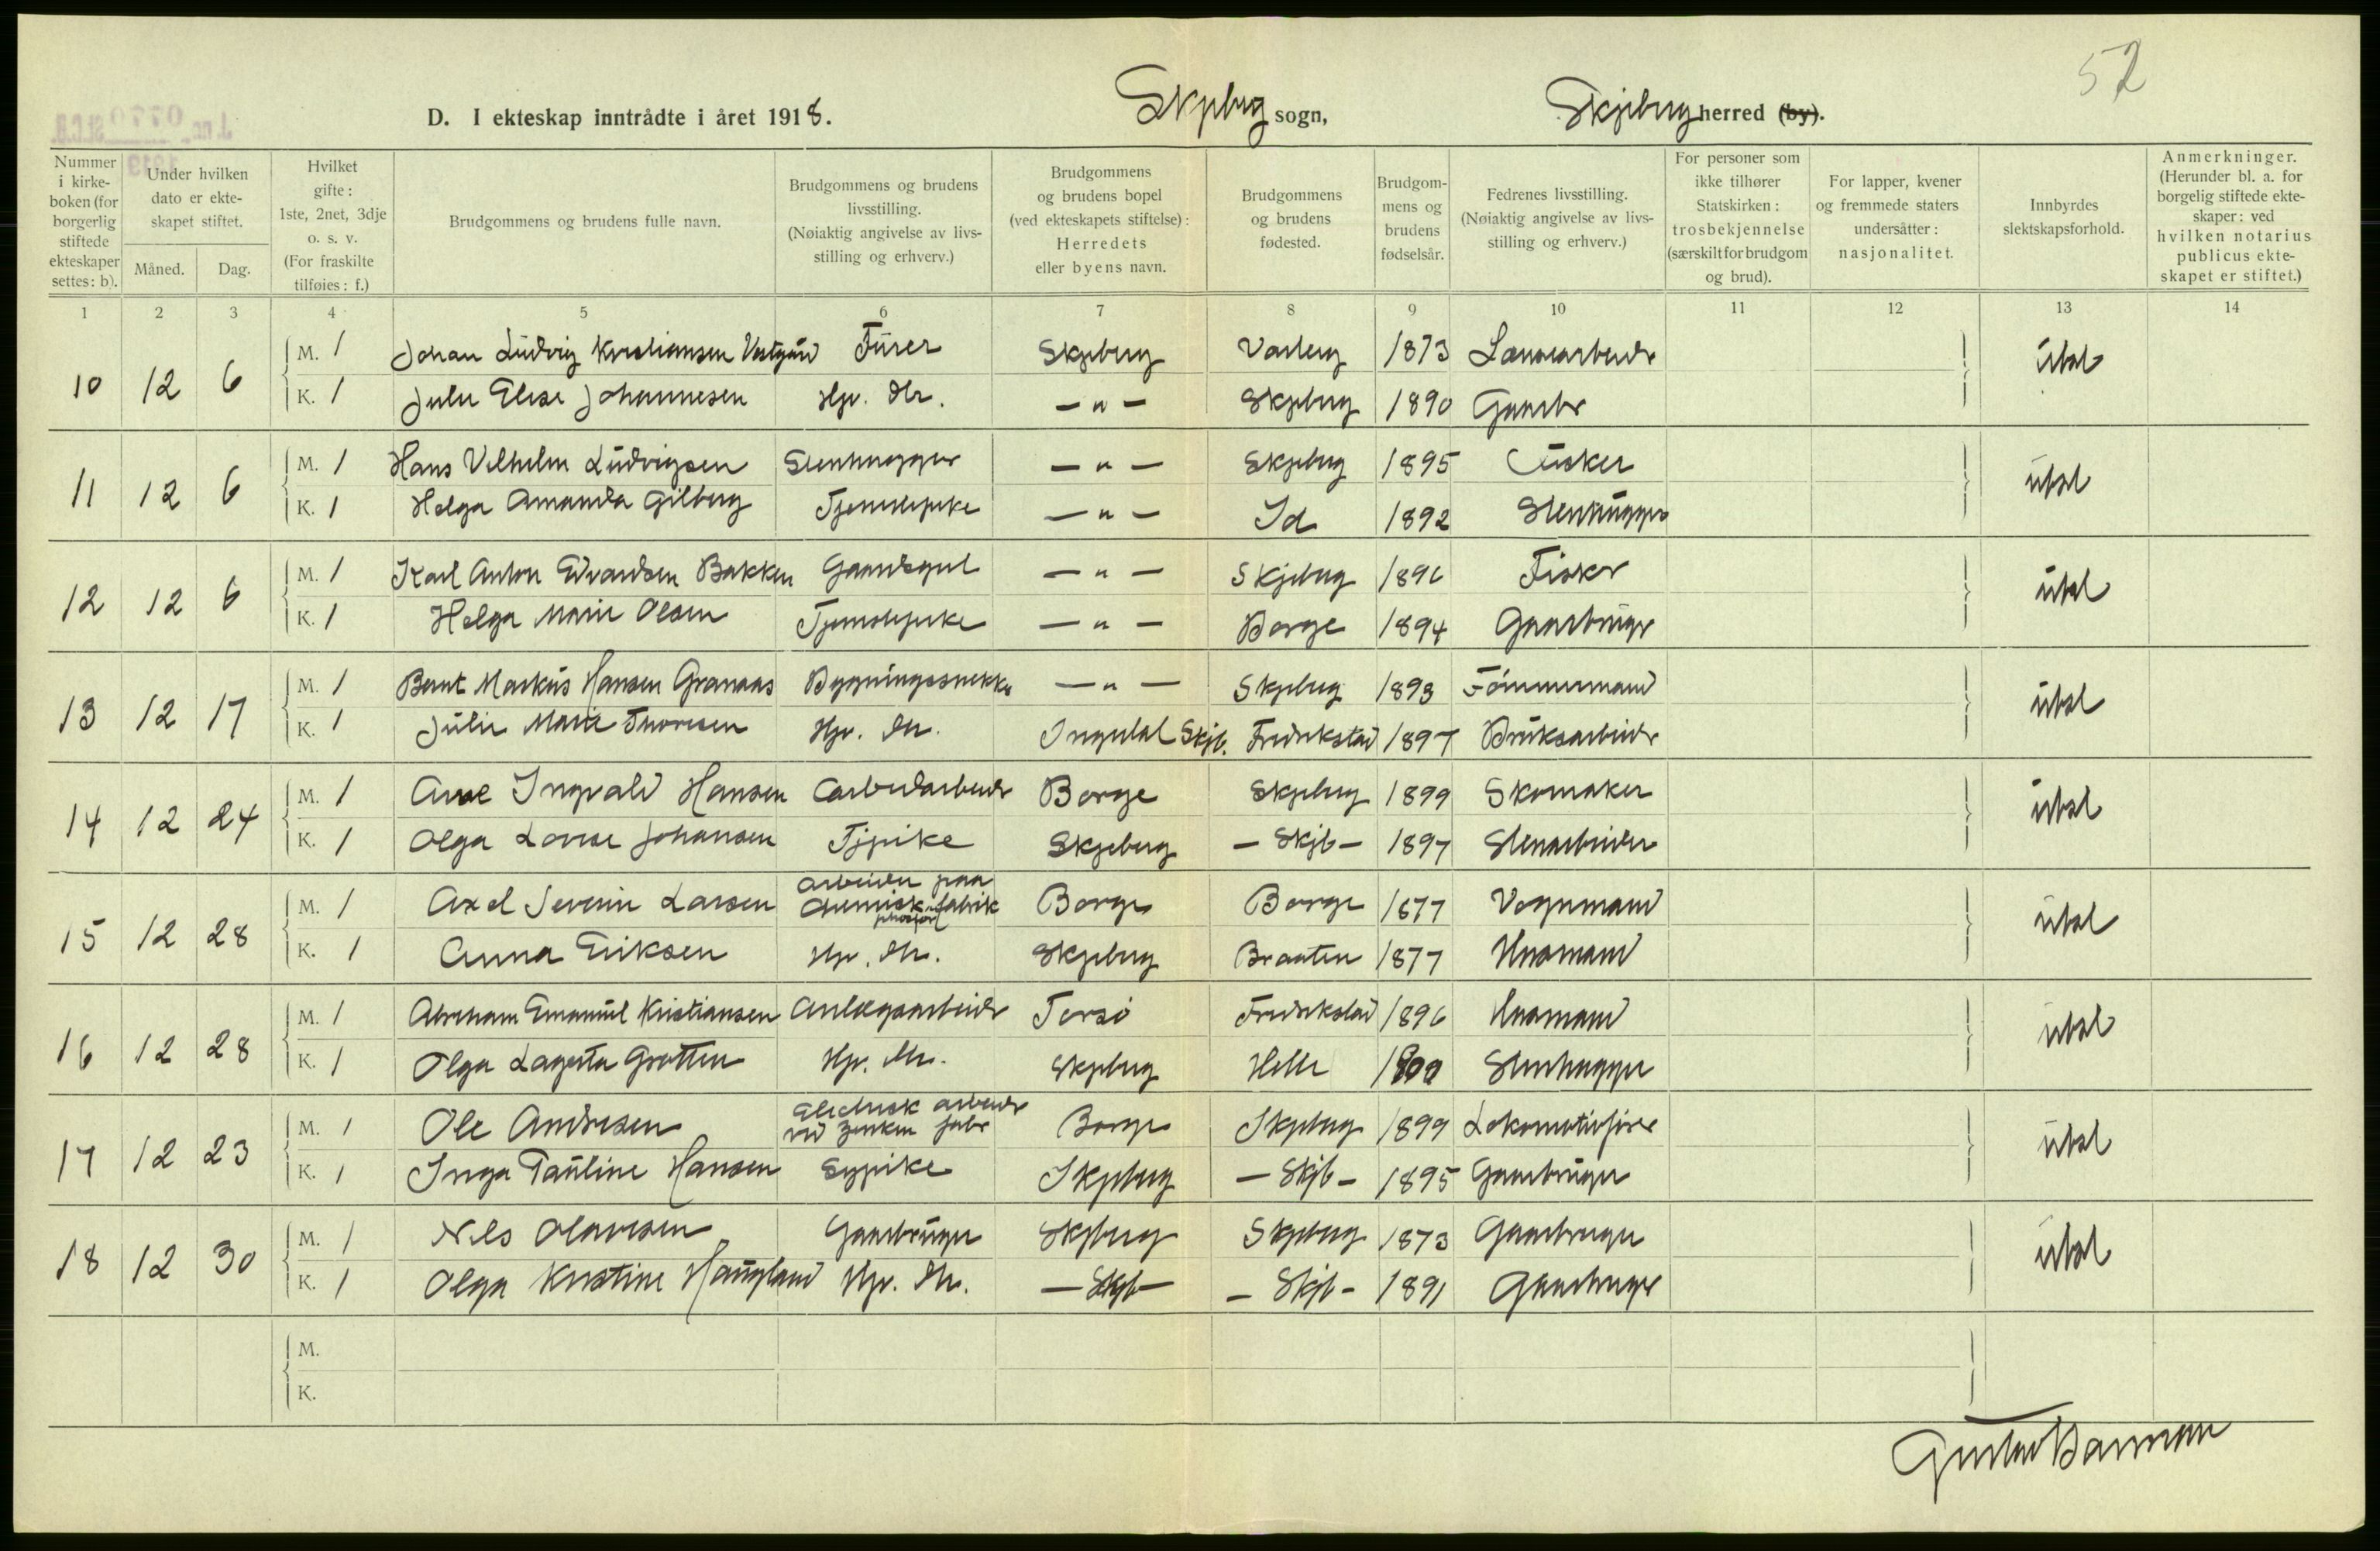 52
D. I ekteskap inntrådte i året 1918. Skjeberg sogn, Skjeberg herred (by).
Nummer i kirkeboken (for borgerlig stiftede ekteskaper settes: b).
Under hvilken dato er ekteskapet stiftet.
Måned. Dag.
Hvilket gifte: 1ste, 2net, 3dje o. s. v. (For fraskilte tilføies: f.)
Brudgommens og brudens fulle navn.
Brudgommens og brudens livsstilling. (Nøiaktig angivelse av livsstilling og erhverv.)
Brudgommens og brudens bopel (ved ekteskapets stiftelse): Herredets eller byens navn.
Brudgommens og brudens fødested.
Brudgommens og brudens fødselsår.
Fedrenes livsstilling. (Nøiaktig angivelse av livsstilling og erhverv.)
For personer som ikke tilhører Statskirken: trosbekjennelse (særskilt for brudgom og brud).
For lapper, kvener og fremmede staters undersåtter: nasjonalitet.
Innbyrdes slektskapsforhold.
Anmerkninger. (Herunder bl. a. for borgelig stiftede ekteskaper: ved hvilken notarius publicus ekteskapet er stiftet.)
1 2 3 4 5 6 7 8 9 10 11 12 13 14
10 12 6 M. 1 Johan Ludvig Kristiansen Skjeberg Varberg 1873 ubsl
K. 1 Julie Elise Johannesen Hjv. Mr. — " — Skjeberg 1890 Gaarbr
11 12 6 M. 1 Hans Vilhelm Ludvigsen Stenhugger — " — Skjeberg 1895 Fisker ubsl
K. 1 Helga Amanda Gilberg Tjenestepike — " — Id 1892 Stenhugger
12 12 6 M. 1 Karl Anton Edvardsen Bakken Gaardsgut — " — Skjeberg 1896 Fisker ubsl
K. 1 Helga Marie Olsen Tjenestepike — " — Borge 1894 Gaarbruger
13 12 17 M. 1 Bernt Markus Hansen Granaas Bygningssnekker — " — Skjeberg 1893 Tömmermand ubsl
K. 1 Julie Marie Thoresen Hjv. Mr. Ingedal Skjb. Fredrikstad 1897 Bruksarbeider
14 12 24 M. 1 Arne Ingvald Hansen Carbidarbeider Borge Skjeberg 1899 Skomaker ubsl
K. 1 Olga Lovise Johansen Tjpike Skjeberg — Skjb — 1897 Stenarbeider
15 12 28 M. 1 Axel Severin Larsen arbeider paa Chemisk fabrik Borge Borge 1877 Vognmand ubsl
phosfor
K. 1 Anna Eriksen Hjv. Mr. Skjeberg Braaten 1877 Husmand
16 12 28 M. 1 Abraham Emanuel Kristiansen Anlægsarbeider Torsö Fredrikstad 1896 Husmand ubsl
K. 1 Olga Lagerta Grotten Hjv. Mr. Skjeberg Helle 1900 Stenhugger
17 12 23 M. 1 Ole Andresen Electrisk arbeider ved Zinken fabr Borge Skjeberg 1899 Lokomotivfører ubsl
K. 1 Inga Pauline Hansen Sypike Skjeberg — Skjb — 1895 Gaarbruger
18 12 30 M. 1 Nils Olavesen Gaarbruger Skjeberg Skjeberg 1873 Gaarbruger ubsl
K. 1 Olga Kristine Haugland Hjv. Mr. — Skjb — — Skjb — 1891 Gaarbruger
M.
K.